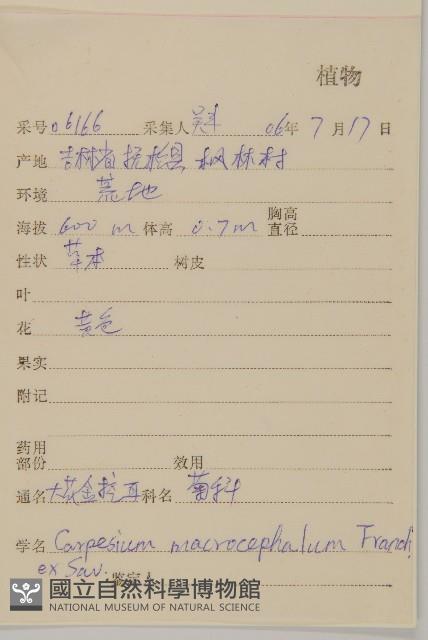 植物
采号 06166 采集人 06年 7月17日
产地 吉林省抚松县 枫林村
环境 荒地
海拔 600 m 体高 0.7m 胸高直径
性状 草本 树皮
叶
花 黄色
果实
附记
药用部份 效用
通名 大花金挖耳 科名 菊科
学名 Carpesium macrocephalum Franch.
ex Sav. 鉴定人
國立自然科學博物館
NATIONAL MUSEUM OF NATURAL SCIENCE